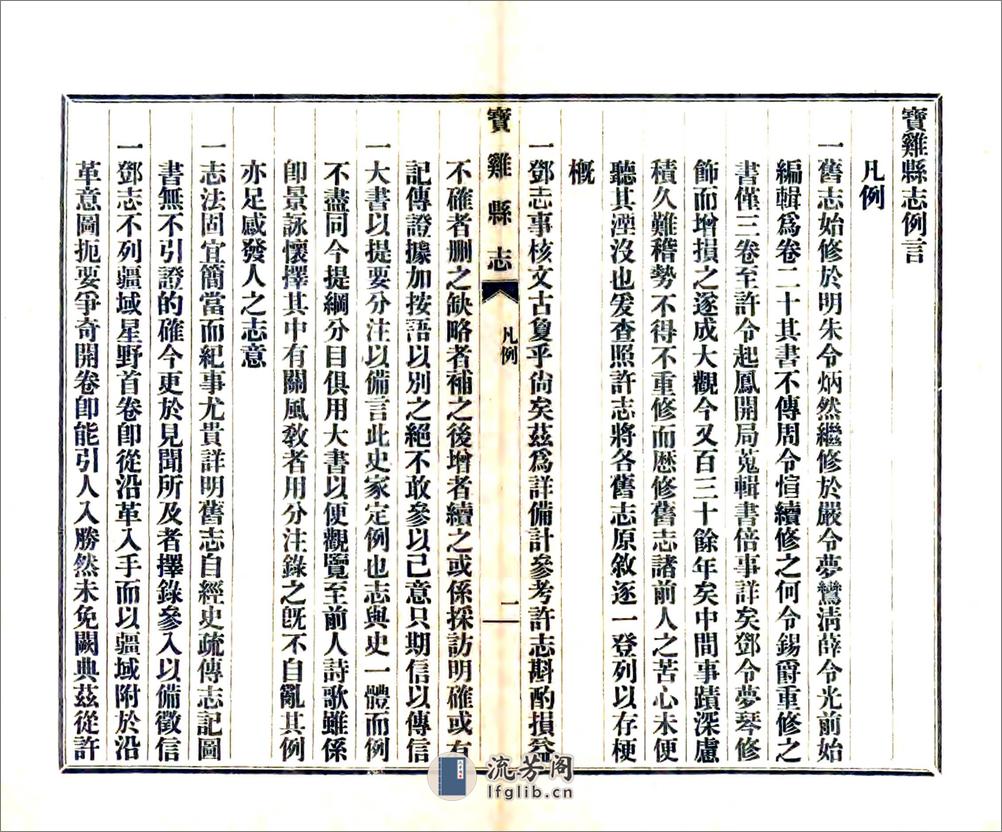 寶雞縣志例言
凡例
一舊志始修於明朱令炳然繼修於嚴令夢鸞清薛令光前始
編輯爲卷二十其書不傳周令愃續修之何令錫爵重修之
書僅三卷至許令起鳳開局蒐輯書倍事詳矣鄧令夢琴修
飾而增損之遂成大觀今又百三十餘年矣中間事蹟深慮
積久難稽勢不得不重修而歷修舊志諸前人之苦心未便
聽其湮沒也爰查照許志將各舊志原敘逐一登列以存梗
概
一鄧志事核文古夐乎尙矣茲爲詳備計參考許志斟酌損益
寶雞縣志
凡例
一
不確者删之缺略者補之後增者續之或係採訪明確或有
記傳證據加按語以別之絕不敢參以己意只期信以傳信
一大書以提要分注以備言此史家定例也志與史一體而例
不盡同今提綱分目俱用大書以便觀覽至前人詩歌雖係
卽景詠懷擇其中有關風敎者用分注錄之旣不自亂其例
亦足感發人之志意
一志法固宜簡當而紀事尤貴詳明舊志自經史疏傳志記圖
書無不引證的確今更於見聞所及者擇錄參入以備徵信
一鄧志不列疆域星野首卷卽從沿革入手而以疆域附於沿
革意圖扼要爭奇開卷卽能引人入勝然未免闕典茲從許
流芳阁
lfglib.cn